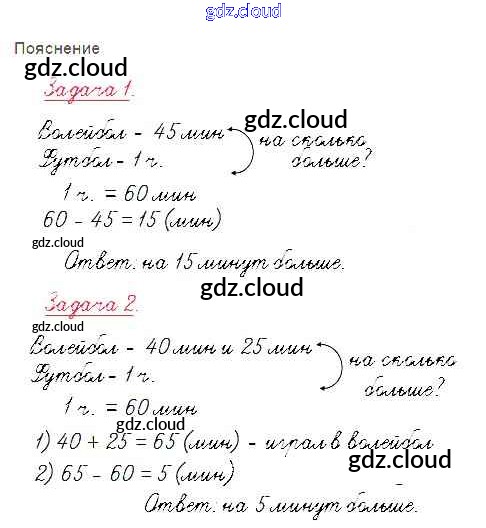 gdz.cloud
Пояснение
gdz.cloud
Задача 1.
gdz.cloud
Волейбол - 45 мин
на сколько
Футбол - 1 ч.
больше?
1 ч. = 60 мин
60 - 45 = 15 (мин)
gdz.cloud
Ответ: на 15 минут больше.
gdz.cloud
Задача 2.
gdz.cloud
Волейбол - 40 мин и 25 мин
на сколько
Футбол - 1 ч.
больше?
1 ч. = 60 мин
gdz.cloud
1) 40 + 25 = 65 (мин) - играл в волейбол
gdz.cloud
2) 65 - 60 = 5 (мин)
Ответ: на 5 минут больше.